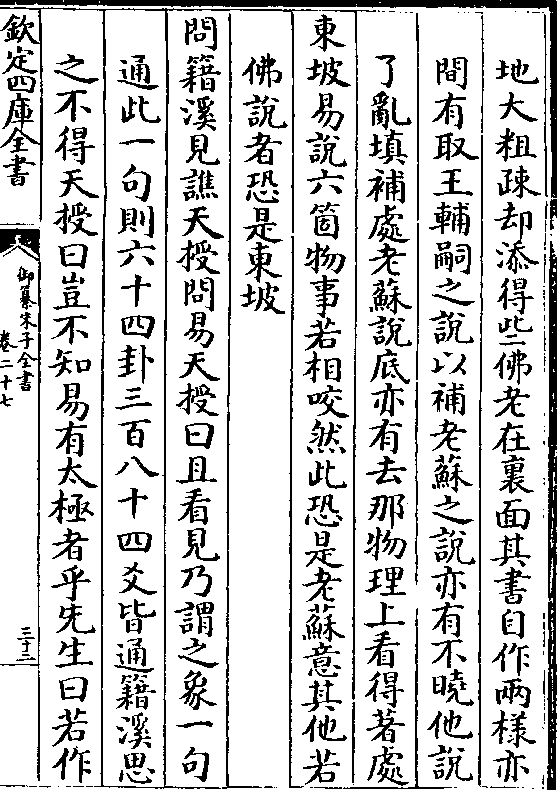 地大粗疎却添得些佛老在裏面其書自作兩様亦
間有取王輔嗣之說以補老蘇之說亦有不曉他說
了亂填補處老蘇說底亦有去那物理上看得著處
東坡易說六箇物事若相咬然此恐是老蘇意其他若
佛說者恐是東坡
問籍溪見譙天授問易天授曰且看見乃謂之象一句
通此一句則六十四卦三百八十四爻皆通籍溪思
之不得天授曰豈不知易有太極者乎先生曰若作
欽定四庫全書
御纂朱子全書
卷二十七
三十二